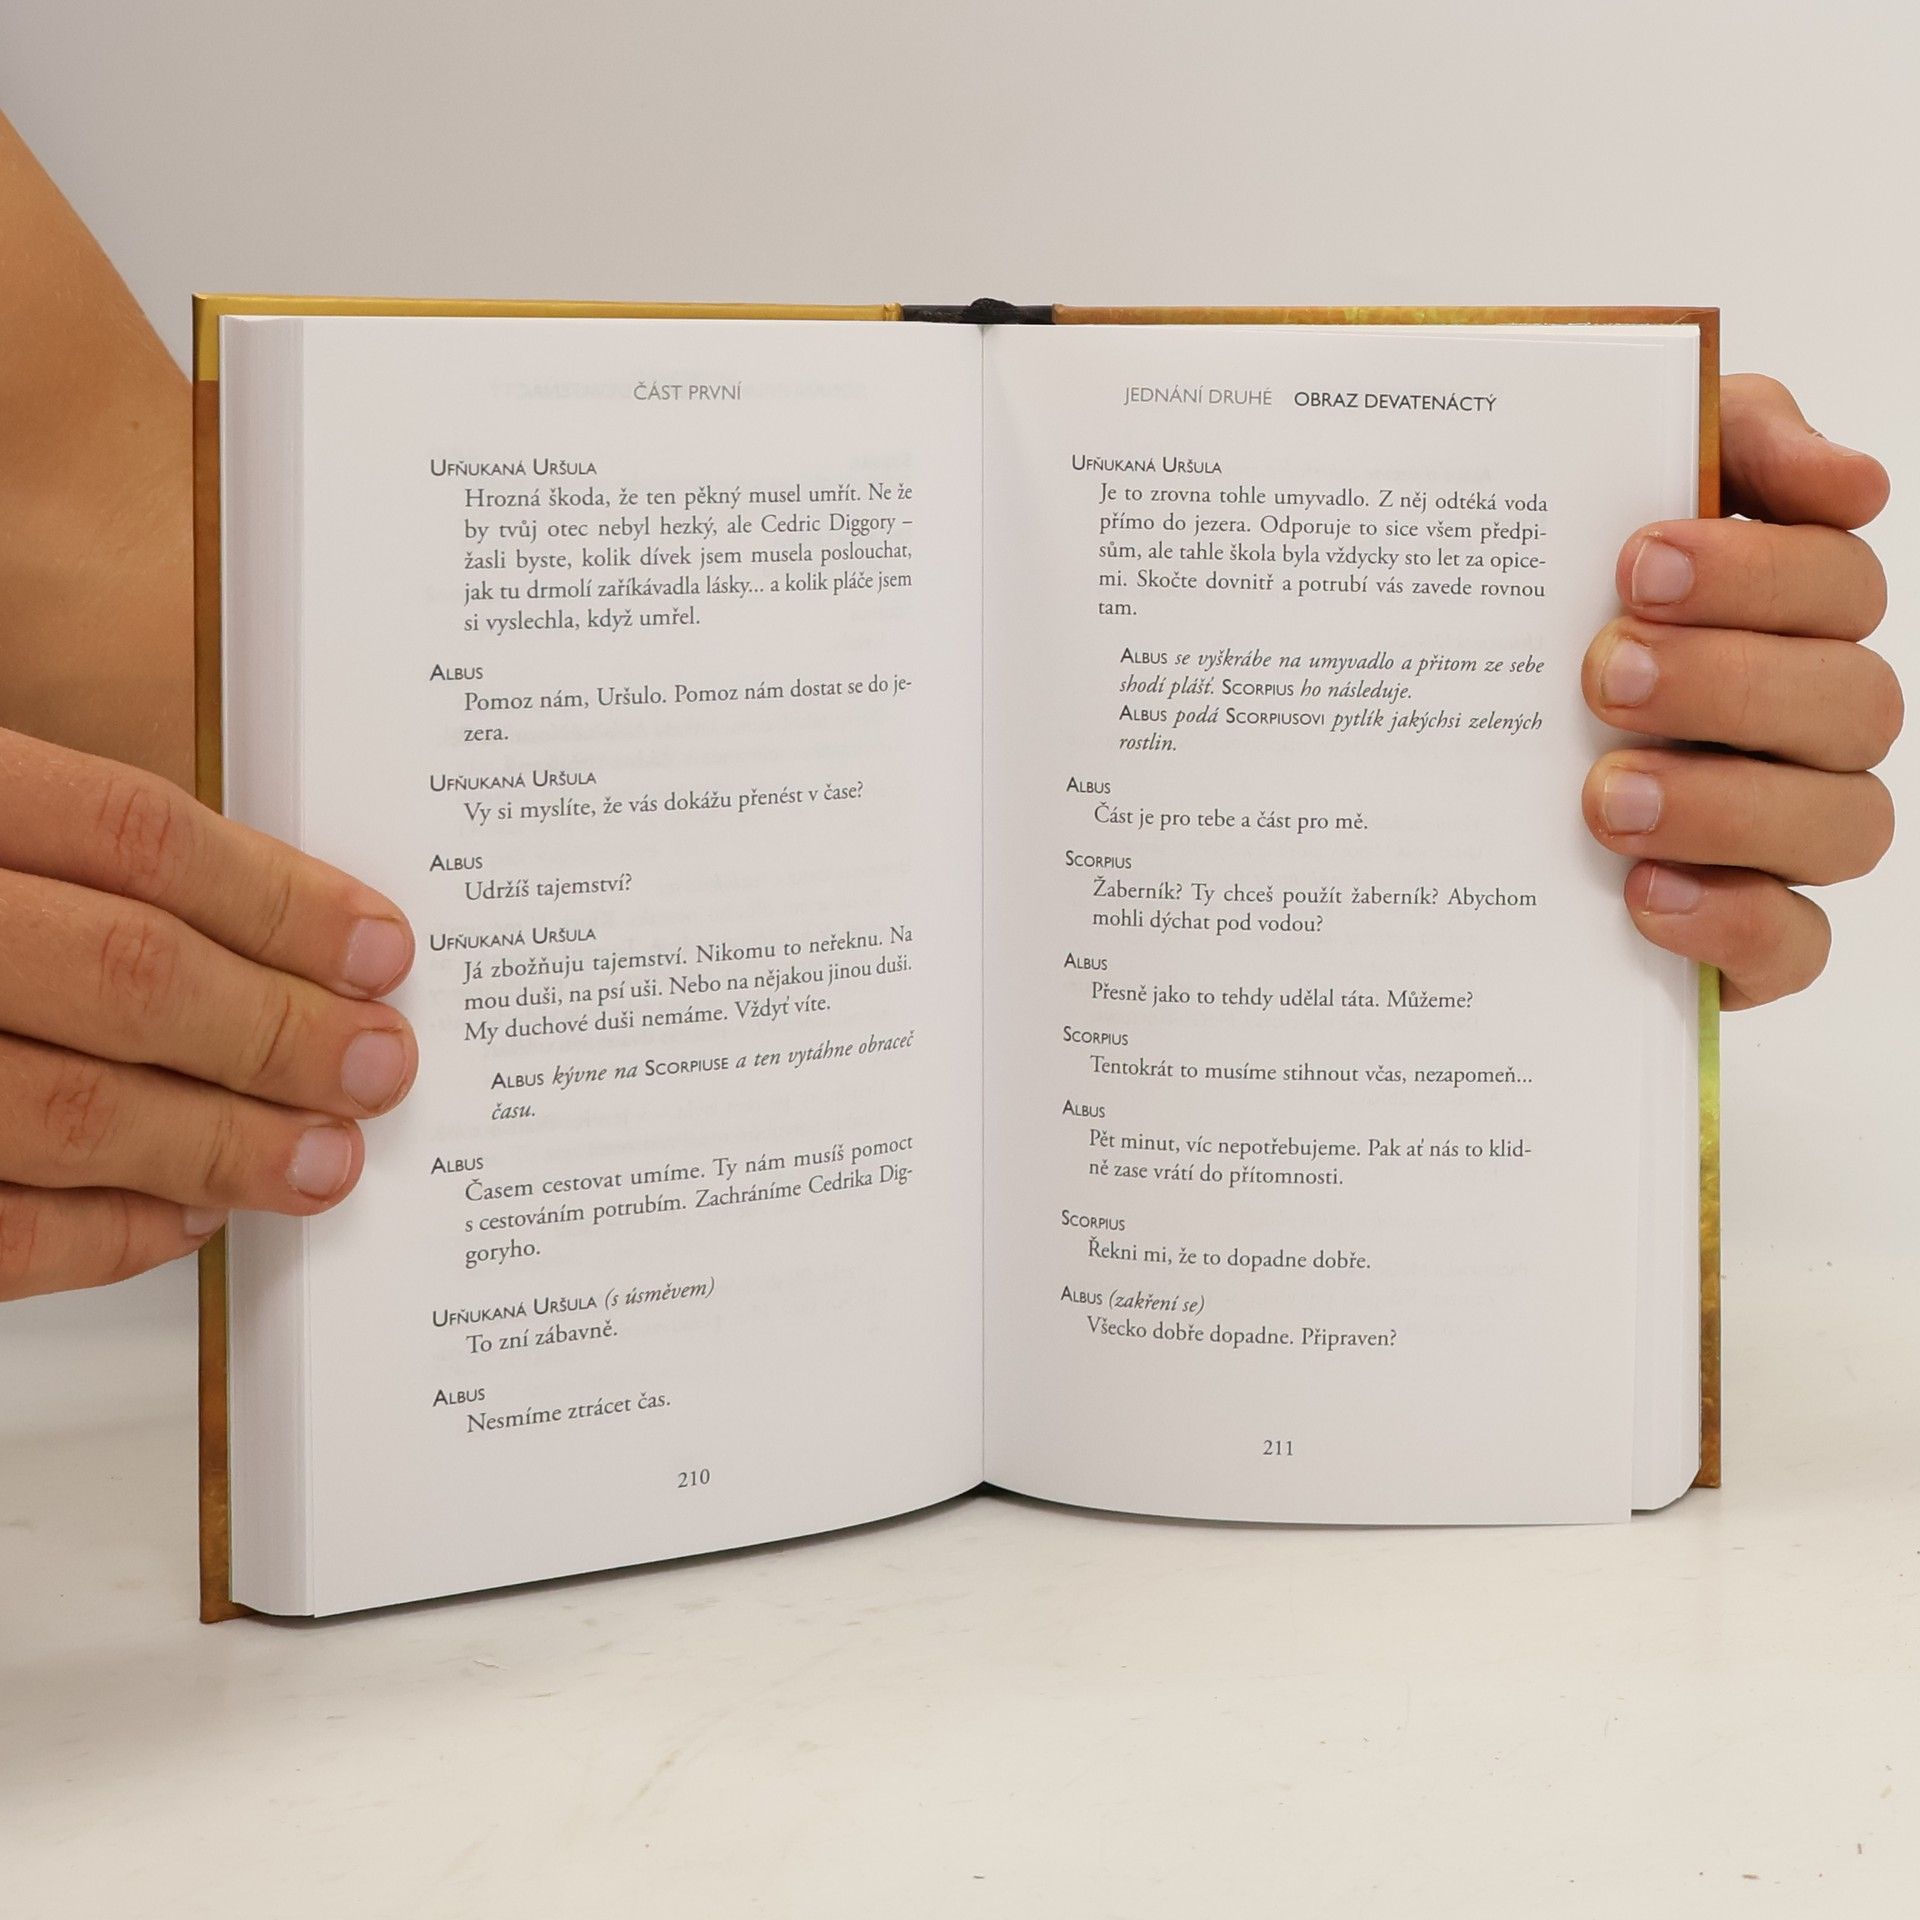 ČÁST PRVNÍ
UFŇUKANÁ URŠULA
Hrozná škoda, že ten pěkný musel umřít. Ne že
by tvůj otec nebyl hezký, ale Cedric Diggory –
žasli byste, kolik dívek jsem musela poslouchat,
jak tu drmolí zaříkávadla lásky... a kolik pláče jsem
si vyslechla, když umřel.
ALBUS
Pomoz nám, Uršulo. Pomoz nám dostat se do je-
zera.
UFŇUKANÁ URŠULA
Vy si myslíte, že vás dokážu přenést v čase?
ALBUS
Udržíš tajemství?
UFŇUKANÁ URŠULA
Já zbožňuju tajemství. Nikomu to neřeknu. Na
mou duši, na psí uši. Nebo na nějakou jinou duši.
My duchové duši nemáme. Vždyť víte.
ALBUS kývne na SCORPIUSE a ten vytáhne obraceč
času.
ALBUS
Časem cestovat umíme. Ty nám musíš pomoct
s cestováním potrubím. Zachráníme Cedrika Dig-
goryho.
UFŇUKANÁ URŠULA (s úsměvem)
To zní zábavně.
ALBUS
Nesmíme ztrácet čas.
210
JEDNÁNÍ DRUHÉ OBRAZ DEVATENÁCTÝ
UFŇUKANÁ URŠULA
Je to zrovna tohle umyvadlo. Z něj odtéká voda
přímo do jezera. Odporuje to sice všem předpi-
sům, ale tahle škola byla vždycky sto let za opice-
mi. Skočte dovnitř a potrubí vás zavede rovnou
tam.
ALBUS se vyškrábe na umyvadlo a přitom ze sebe
shodí plášť. SCORPIUS ho následuje.
ALBUS podá SCORPIUSOVI pytlík jakýchsi zelených
rostlin.
ALBUS
Část je pro tebe a část pro mě.
SCORPIUS
Žaberník? Ty chceš použít žaberník? Abychom
mohli dýchat pod vodou?
ALBUS
Přesně jako to tehdy udělal táta. Můžeme?
SCORPIUS
Tentokrát to musíme stihnout včas, nezapomeň...
ALBUS
Pět minut, víc nepotřebujeme. Pak ať nás to klid-
ně zase vrátí do přítomnosti.
SCORPIUS
Řekni mi, že to dopadne dobře.
ALBUS (zakření se)
Všecko dobře dopadne. Připraven?
211